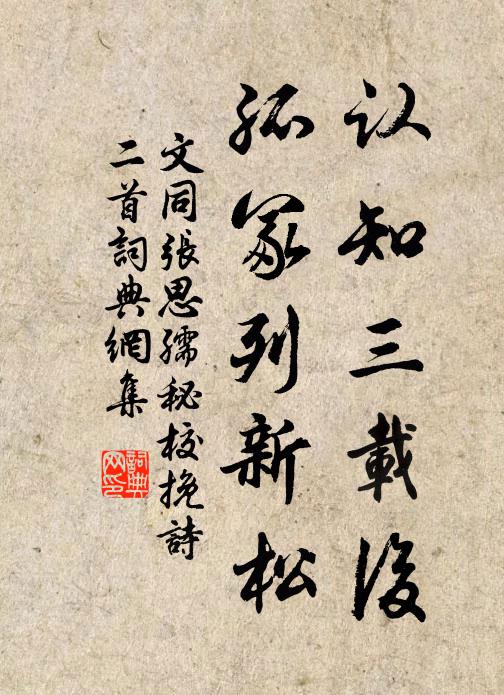 认知三載後
孤冢列新松
文同張思孺秘校挽詩
二首詞典網集
詞典网印